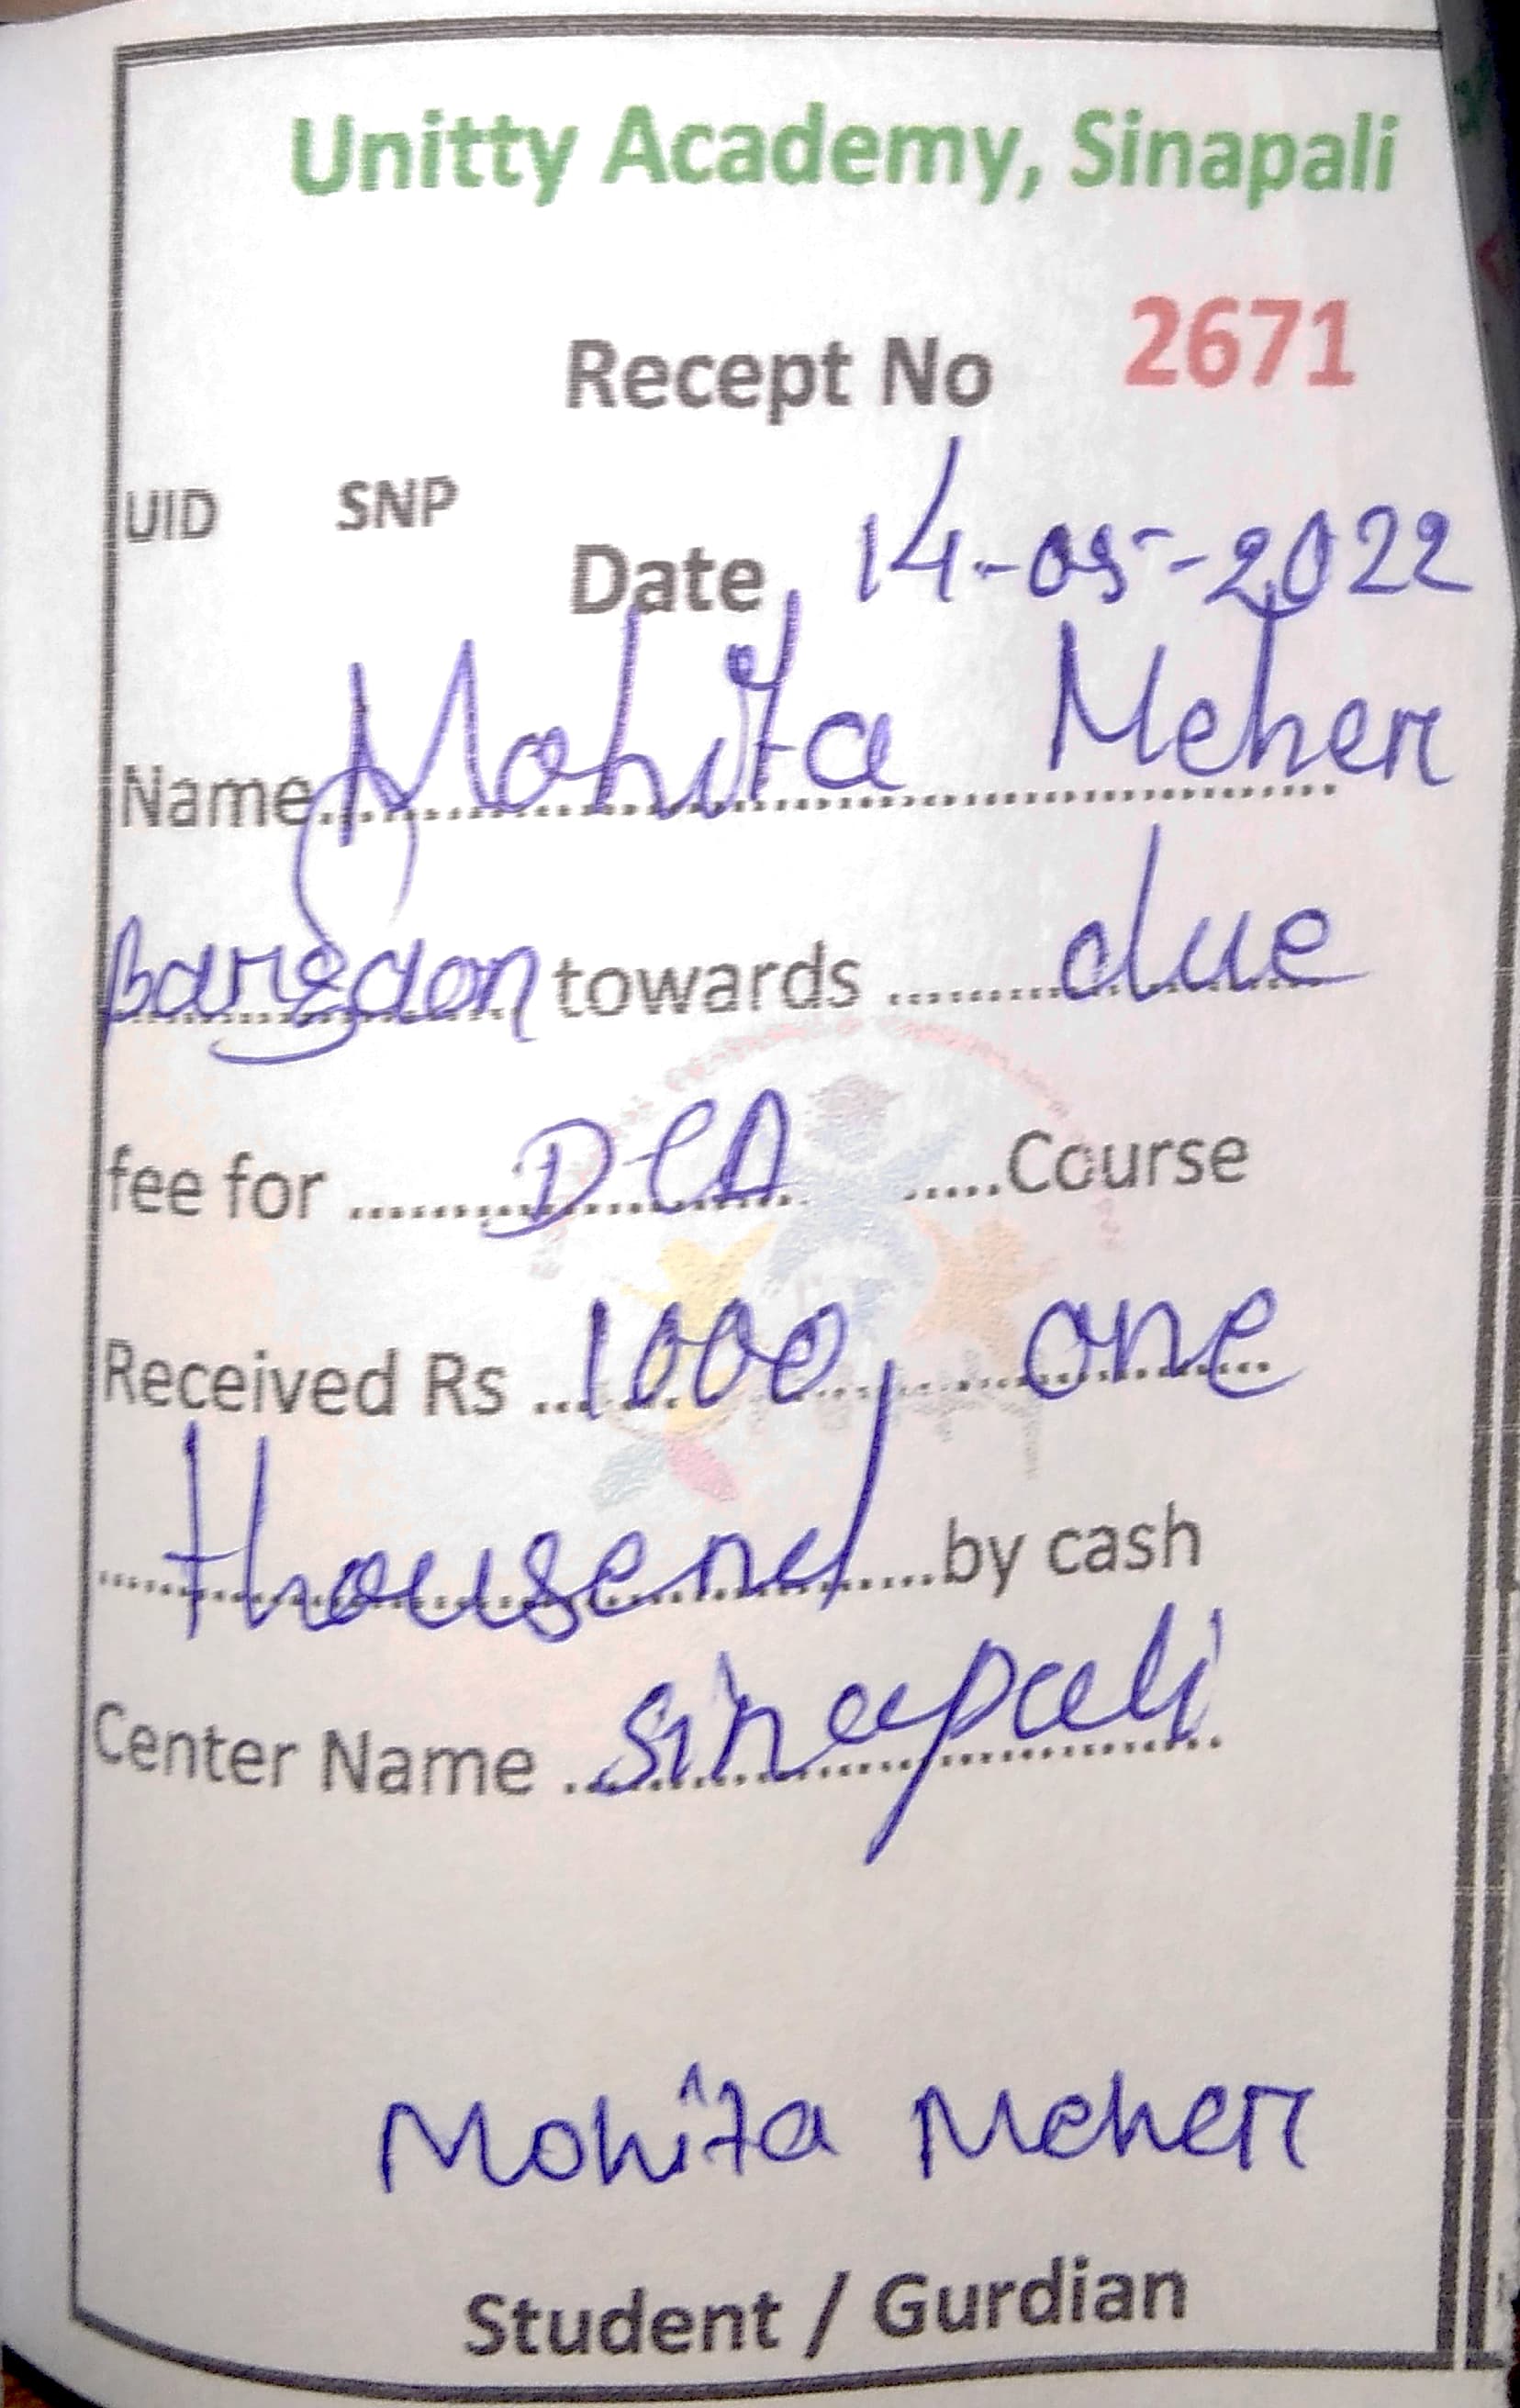 Unitty Academy, Sinapali
Recept No 2671
UID SNP
Date 14-05-2022
Name Mohita Meher
Bargaon towards ........ due
fee for ........ DCA ........ Course
Received Rs ... 1000, one
thousend ........ by cash
Center Name ... Sinapali
Mohita Meher
Student / Gurdian